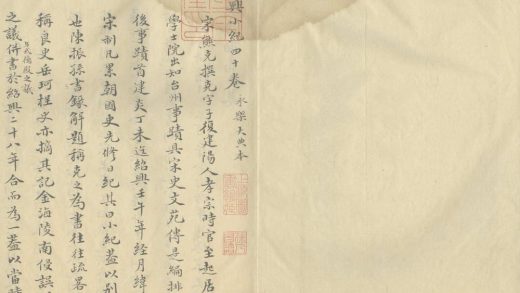 興小紀四十卷 永樂大典本
宋熊克撰克字子復建陽人孝宗時官至起居
學士院出知台州事蹟具宋史文苑傳是編排
後事蹟首建炎丁未迄紹興壬午年經月緯
宋制凡累朝國史先修日紀其曰小紀蓋以別
也陳振孫書録解題稱克之為書往往疏畧
稱良史岳珂桯史亦摘其記金海陵南侵誤
之議併書於紹興二十八年合而為一蓋以當時